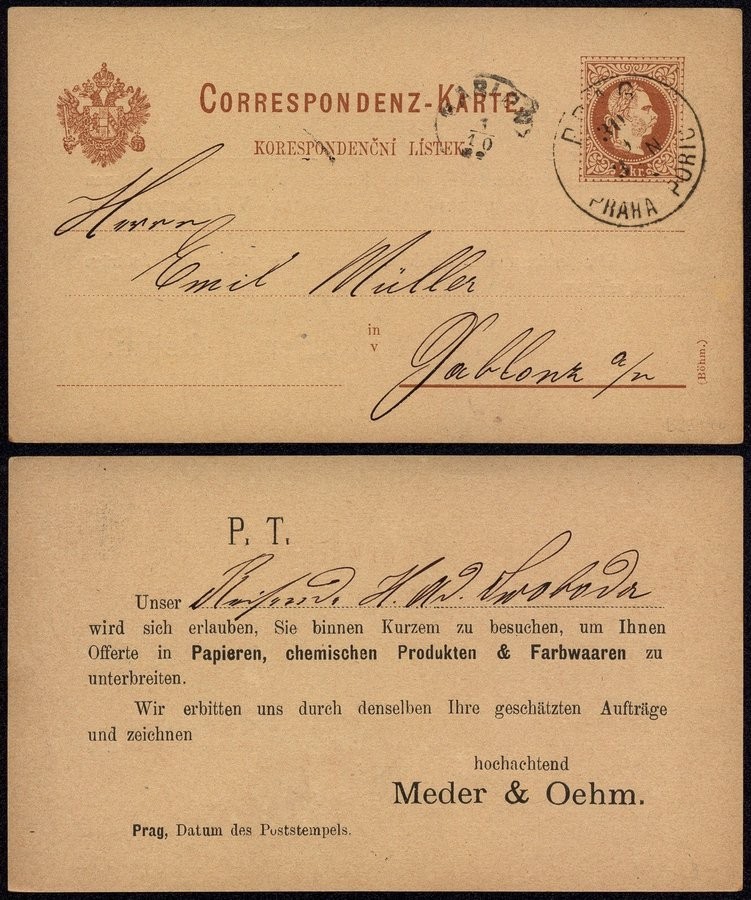 CORRESPONDENZ-KARTE
KORESPONDENČNÍ LÍSTEK
1/10
2 kr
PRAHA PORIC
Herrn
Emil Müller
in
v
Gablonz a/n
(Böhm.)
P. T.
Unser Reisende. H. Ad. Swoboda
wird sich erlauben, Sie binnen Kurzem zu besuchen, um Ihnen
Offerte in Papieren, chemischen Produkten & Farbwaaren zu
unterbreiten.
Wir erbitten uns durch denselben Ihre geschätzten Aufträge
und zeichnen
hochachtend
Meder & Oehm.
Prag, Datum des Poststempels.